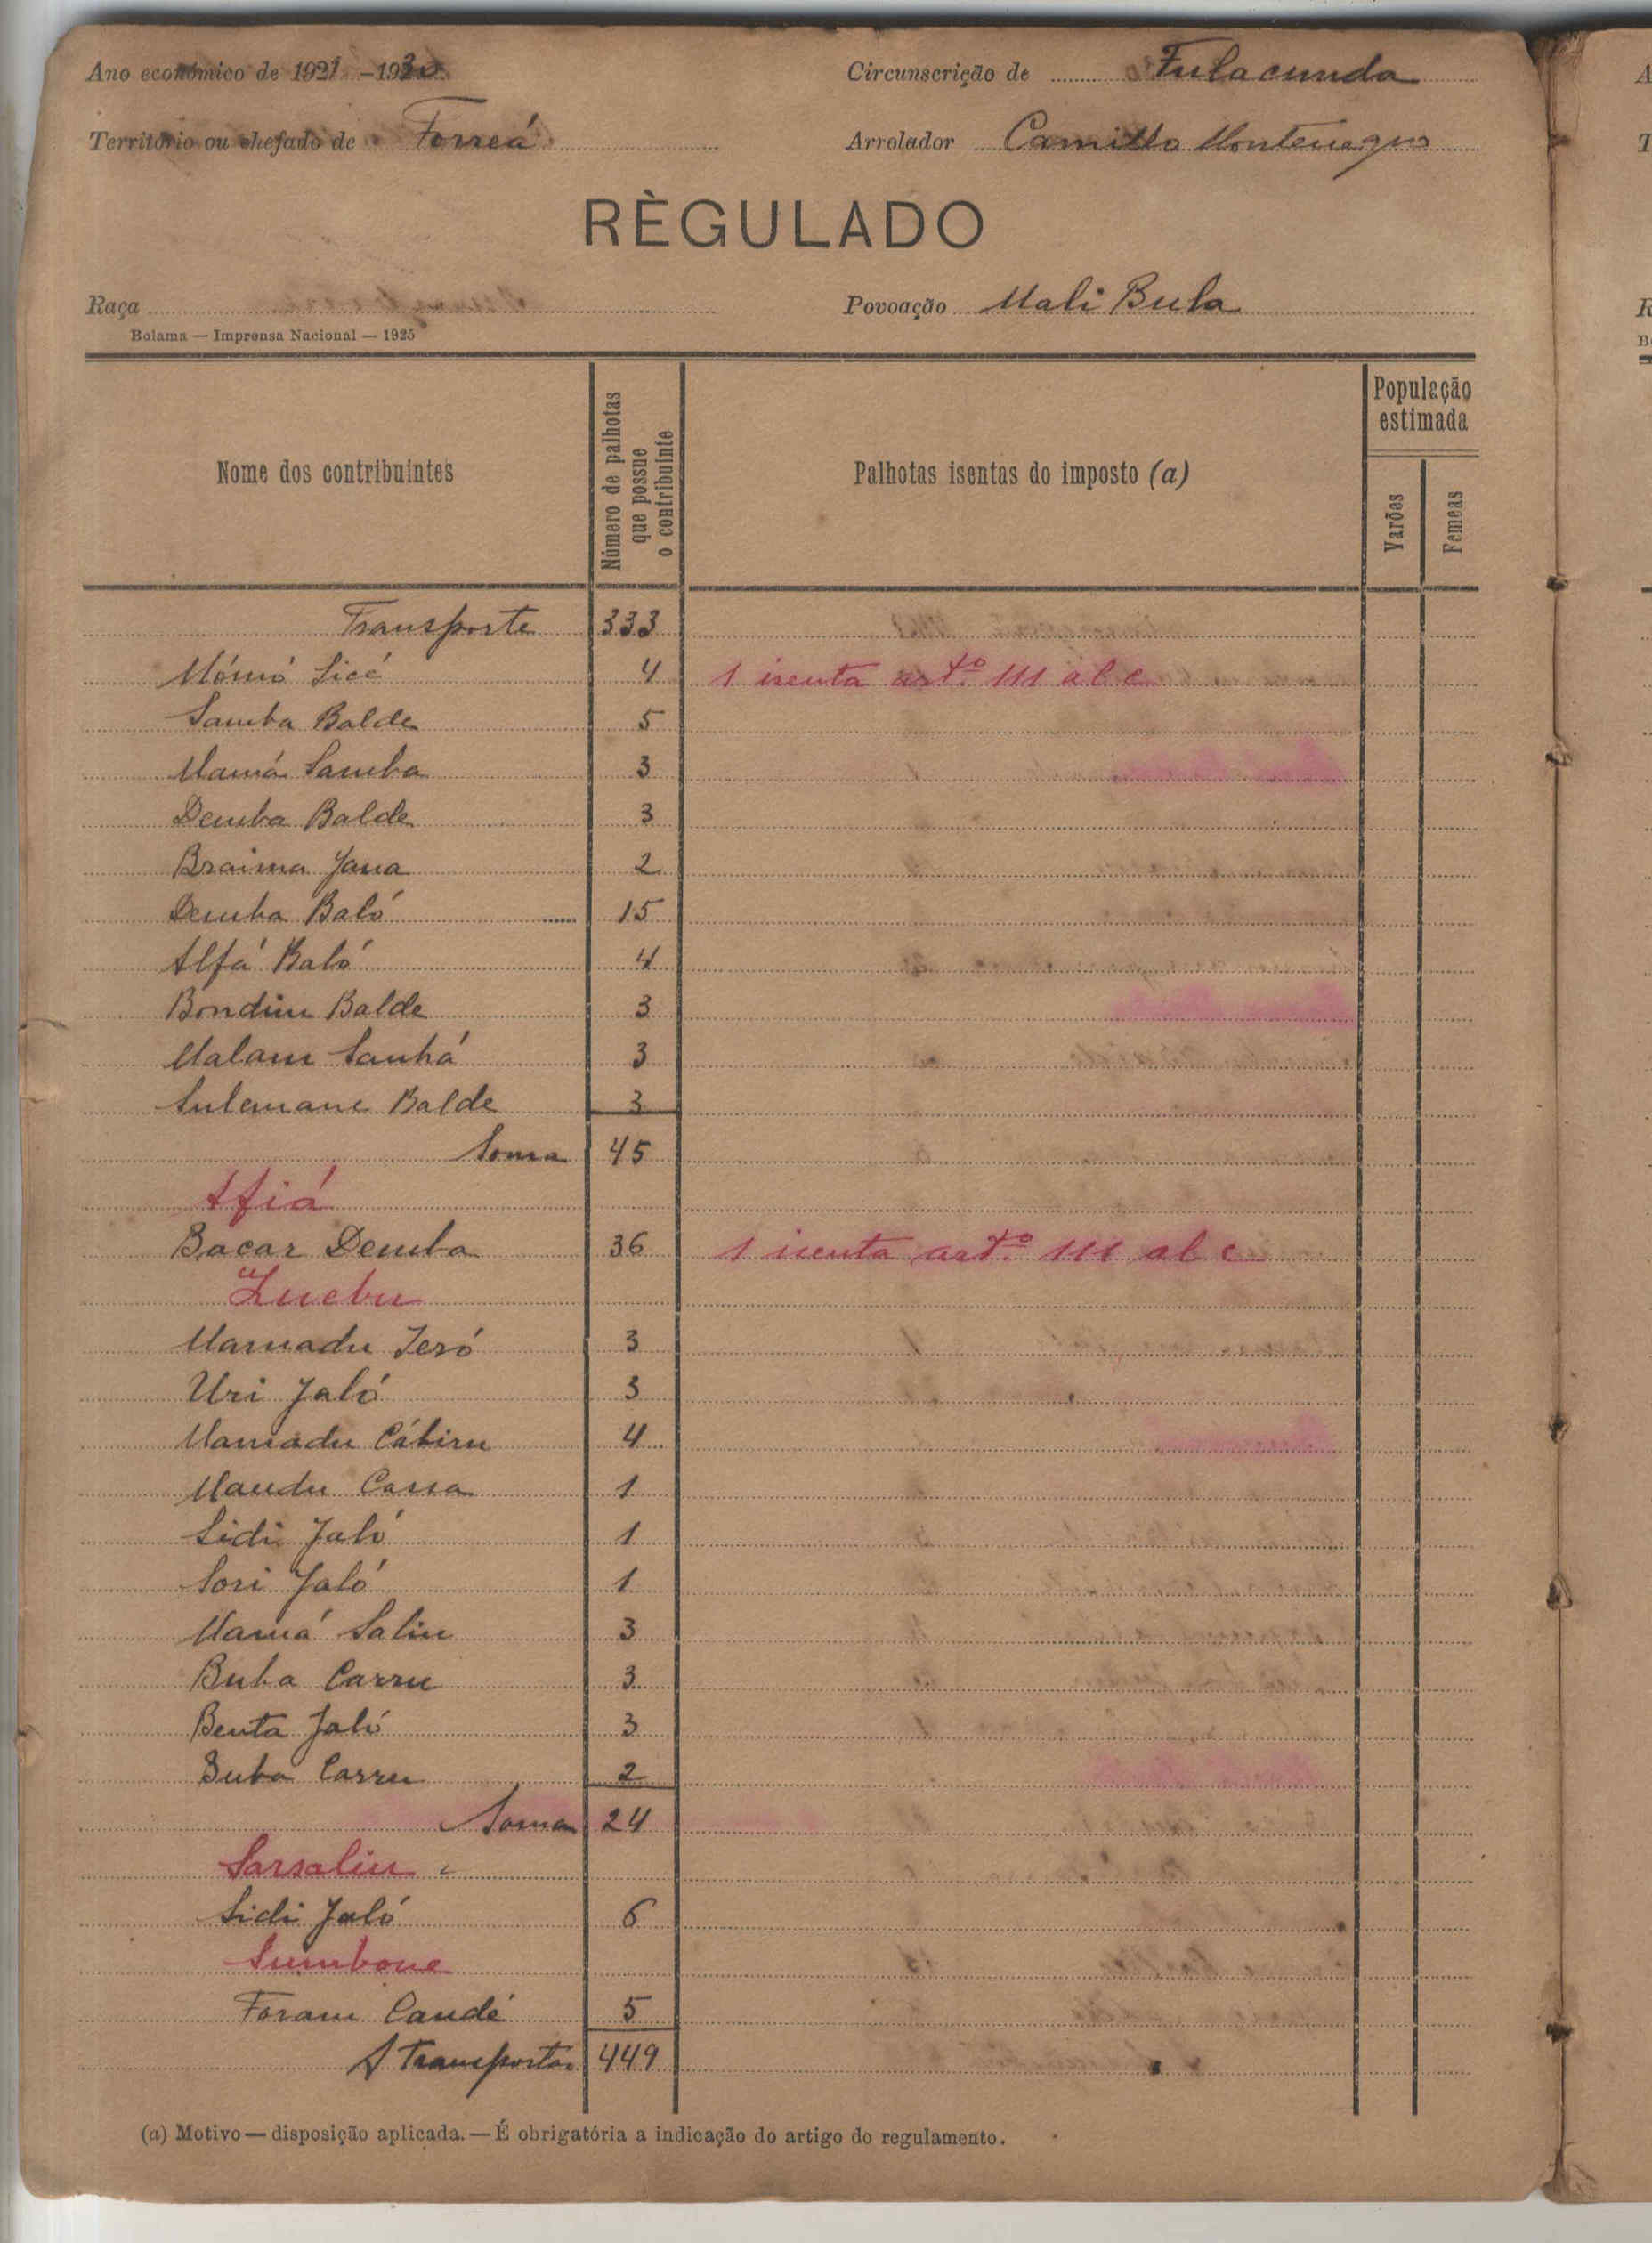 Ano económico de 1929 - 1930 Circunscrição de Fulacunda
Território ou chefado de Forreá Arrolador Camillo Montenegro
RÈGULADO
Raça Povoação Mali Bula
Bolama — Imprensa Nacional — 1925
Nome dos contribuintes
Número de palhotas que possue o contribuinte
Palhotas isentas do imposto (a)
População estimada
Varões
Femeas
Transporte 333
Mómó Sicé 4 1 isenta artº 111 al c
Samba Balde 5
Mamá Samba 3
Demba Balde 3
Braima Jana 2
Demba Baló 15
Alfá Baló 4
Bondim Balde 3
Malam Sanhá 3
Sulemane Balde 3
Soma 45
Afiá
Bacar Demba 36 1 isenta artº 111 al c
Zuebu
Mamadu Jeró 3
Uri Jaló 3
Mamadu Cábiru 4
Maudu Cassa 1
Sidi Jaló 1
Sori Jaló 1
Mamá Saliu 3
Buba Carru 3
Benta Jaló 3
Buba Carru 2
Soma 24
Sarsaliu
Sidi Jaló 6
Sumboue
Foram Candé 5
A Transportar 449
(a) Motivo — disposição aplicada. — É obrigatória a indicação do artigo do regulamento.